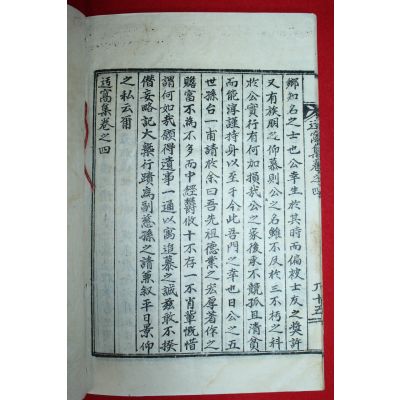 鄉知名之士也公幸生於其時而偏被士友之獎許
又有族朋之仰慕則公之名雖不及於三不朽之科
於公實行有何加損哉公之家後承不競孤且清貧
而能淳謹持身以至于今此吾門之幸也日公之五
世孫台一甫請於余曰吾先祖德業之宏厚著作之
贍富不爲不多而中經鬱攸十不存一不肖輩慨惜
謂何如我願得遺事一通以寓追慕之誠玆敢不揆
僭妄略記大槩行蹟爲副慈孫之請兼叙平日景仰
之私云爾
迃窩集卷之四
迃窩集卷之四